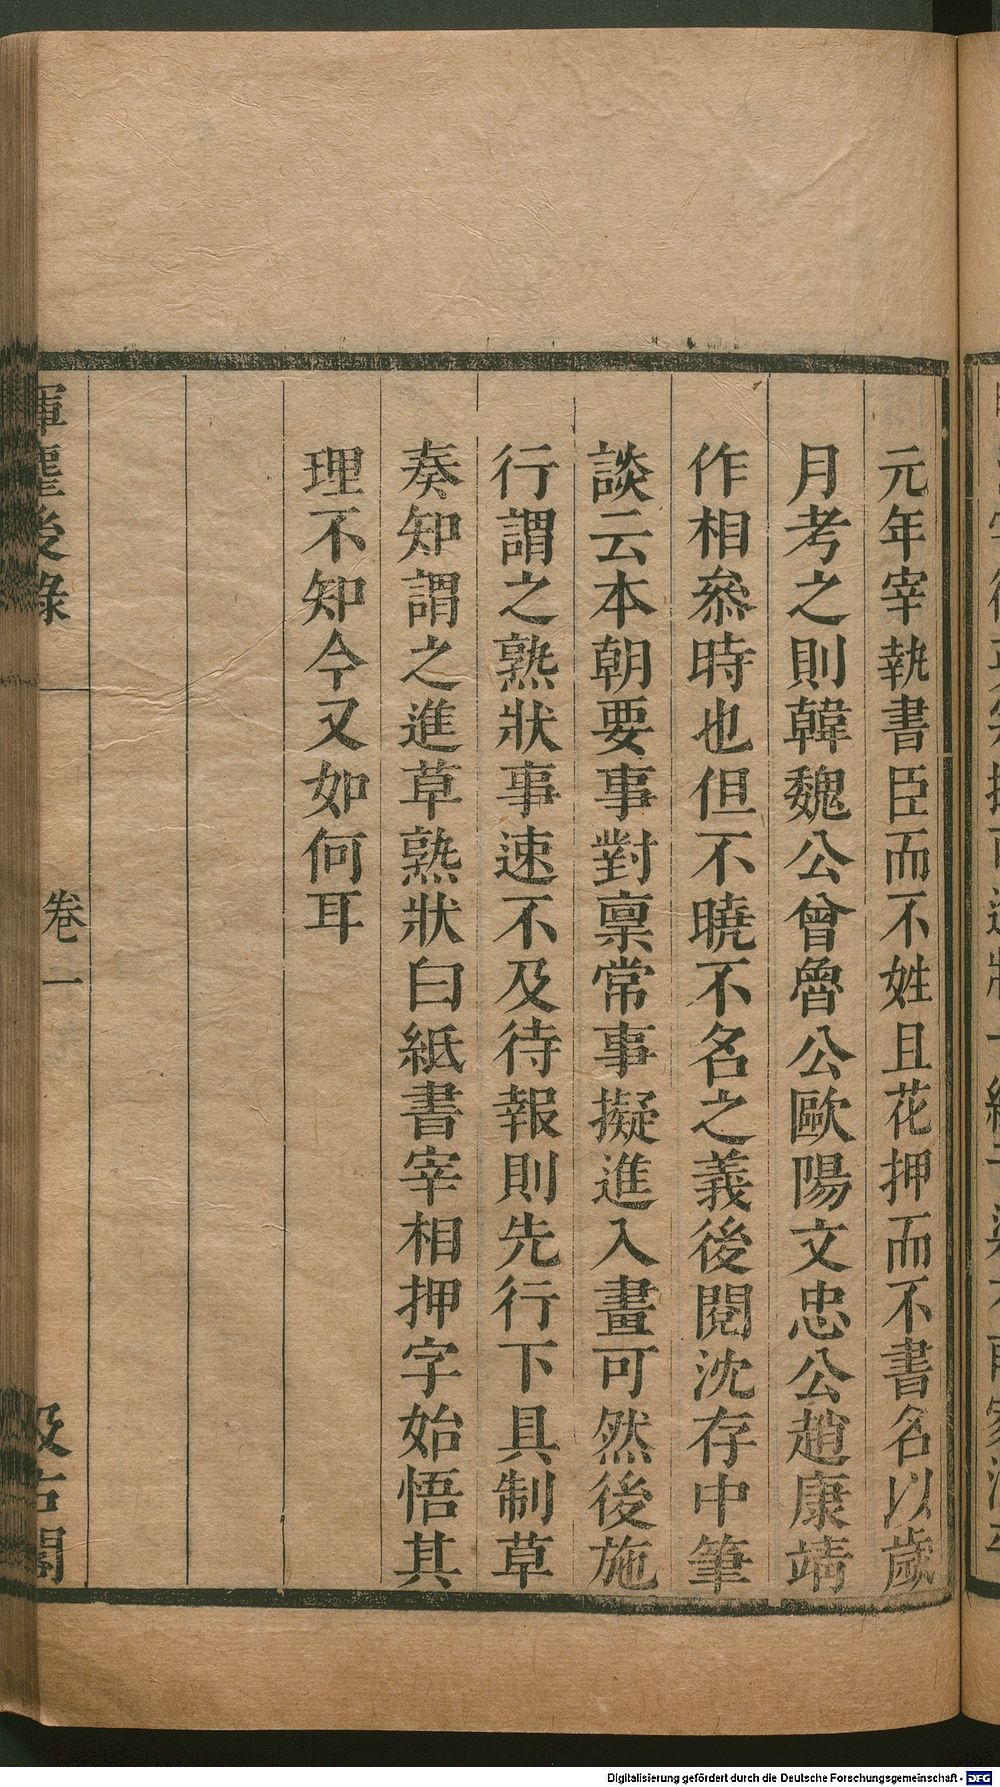 元年宰執書臣而不姓且花押而不書名以歲
月考之則韓魏公曾魯公歐陽文忠公趙康靖
作相叅時也但不曉不名之義後閱沈存中筆
談云本朝要事對稟常事擬進入畫可然後施
行謂之熟狀事速不及待報則先行下具制草
奏知謂之進草熟狀白紙書宰相押字始悟其
理不知今又如何耳
揮麈後錄
卷一
汲古閣
Digitalisierung gefördert durch die Deutsche Forschungsgemeinschaft - DFG